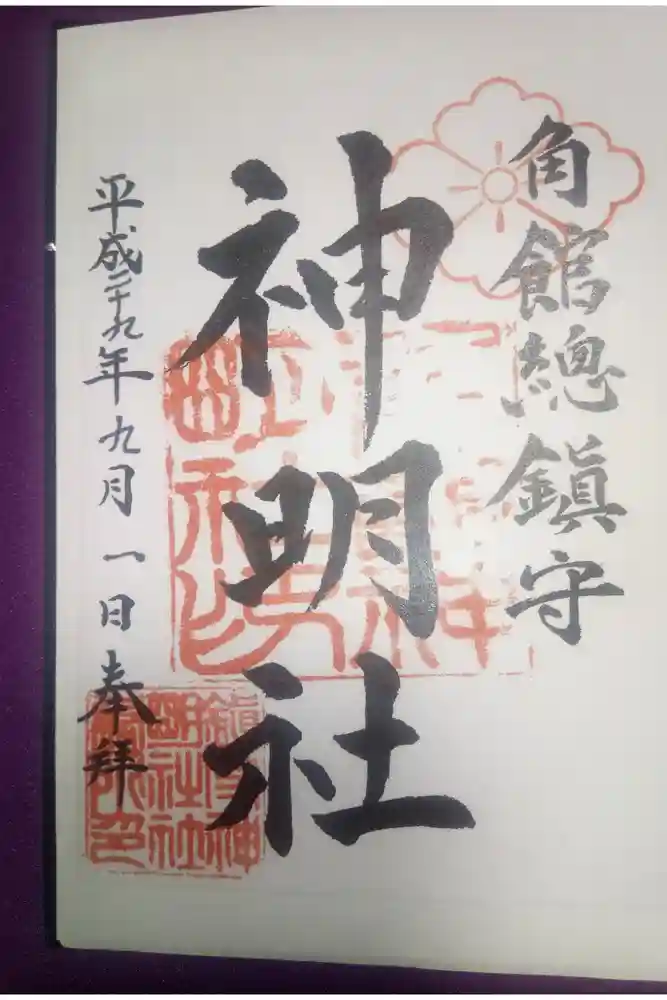 角館總鎮守
神明社
平成二十九年九月一日奉拝